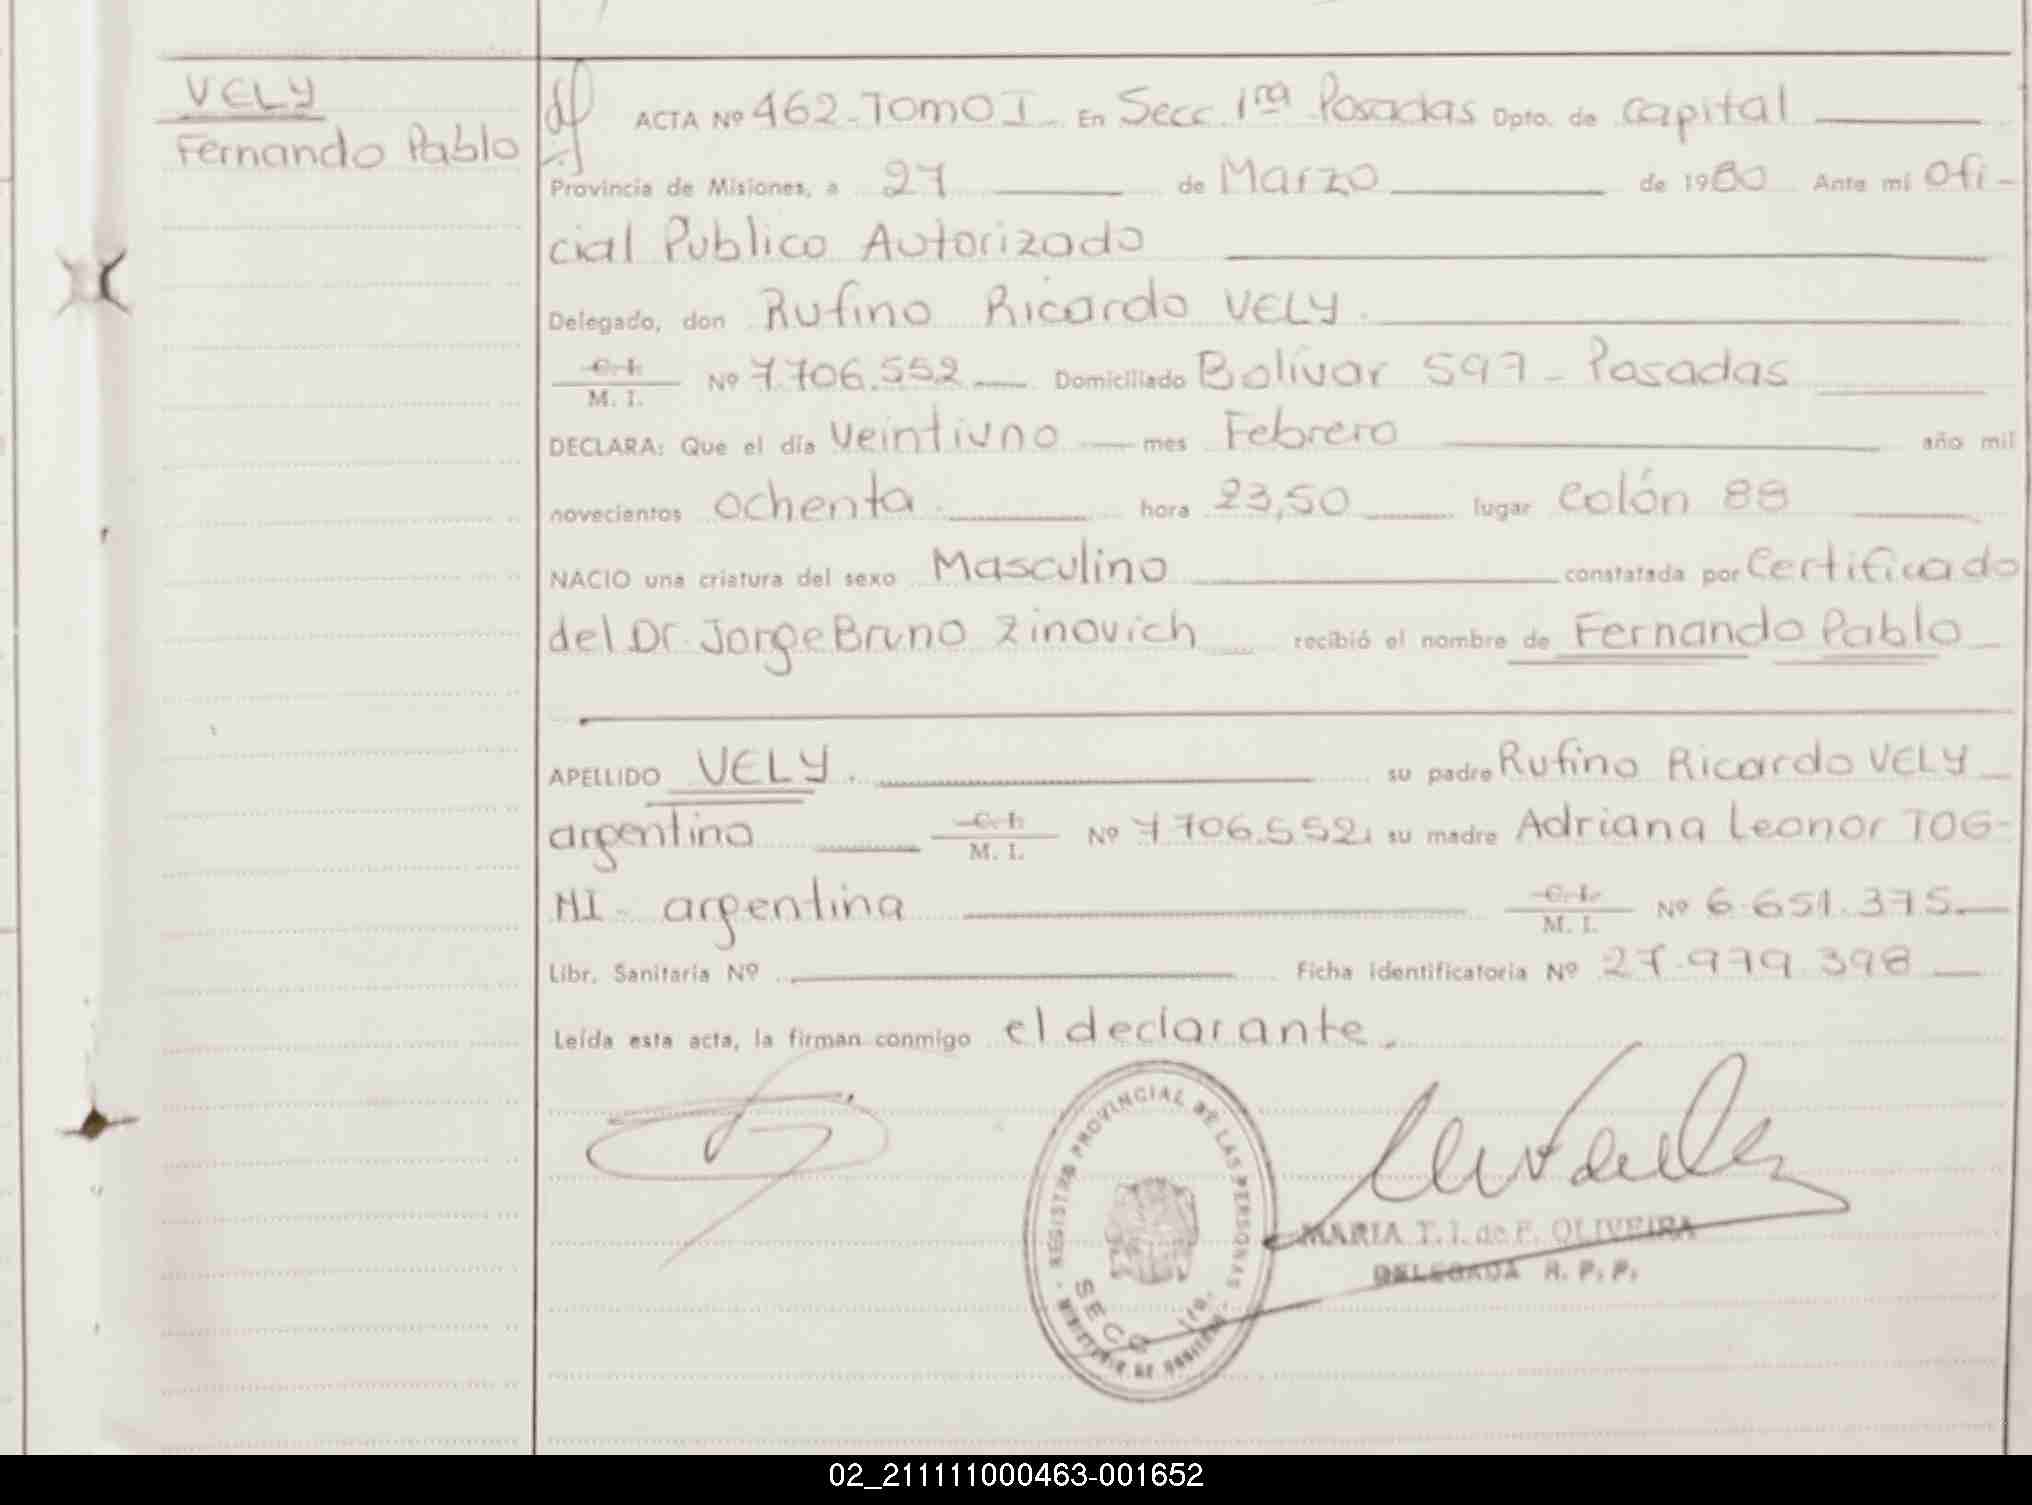 VELY
Fernando Pablo
ACTA Nº 462-Tomo I- En Secc. 1ra Posadas Dpto. de capital
Provincia de Misiones, a 27 de Marzo de 1980 Ante mi Ofi-
cial Publico Autorizado
Delegado, don Rufino Ricardo VELY.
C.I.
M. I. Nº 7.706.552 Domiciliado Bolívar 597 - Posadas
DECLARA: Que el día Veintiuno mes Febrero año mil
novecientos ochenta. hora 23,50 lugar Colón 88
NACIO una criatura del sexo Masculino constatada por Certificado
del Dr. Jorge Bruno Zinovich recibió el nombre de Fernando Pablo
APELLIDO VELY. su padre Rufino Ricardo VELY
argentino C.I. M. I. Nº 7.706.552, su madre Adriana Leonor TOG-
NI- argentina C.I. M. I. Nº 6.651.375.
Libr. Sanitaria Nº Ficha identificatoria Nº 27.979.398
Leída esta acta, la firman conmigo el declarante.
REGISTRO PROVINCIAL DE LAS PERSONAS
SECC. 1ra.
MARIA T. I. de F. OLIVEIRA
DELEGADA R. P. P.
02_211111000463-001652